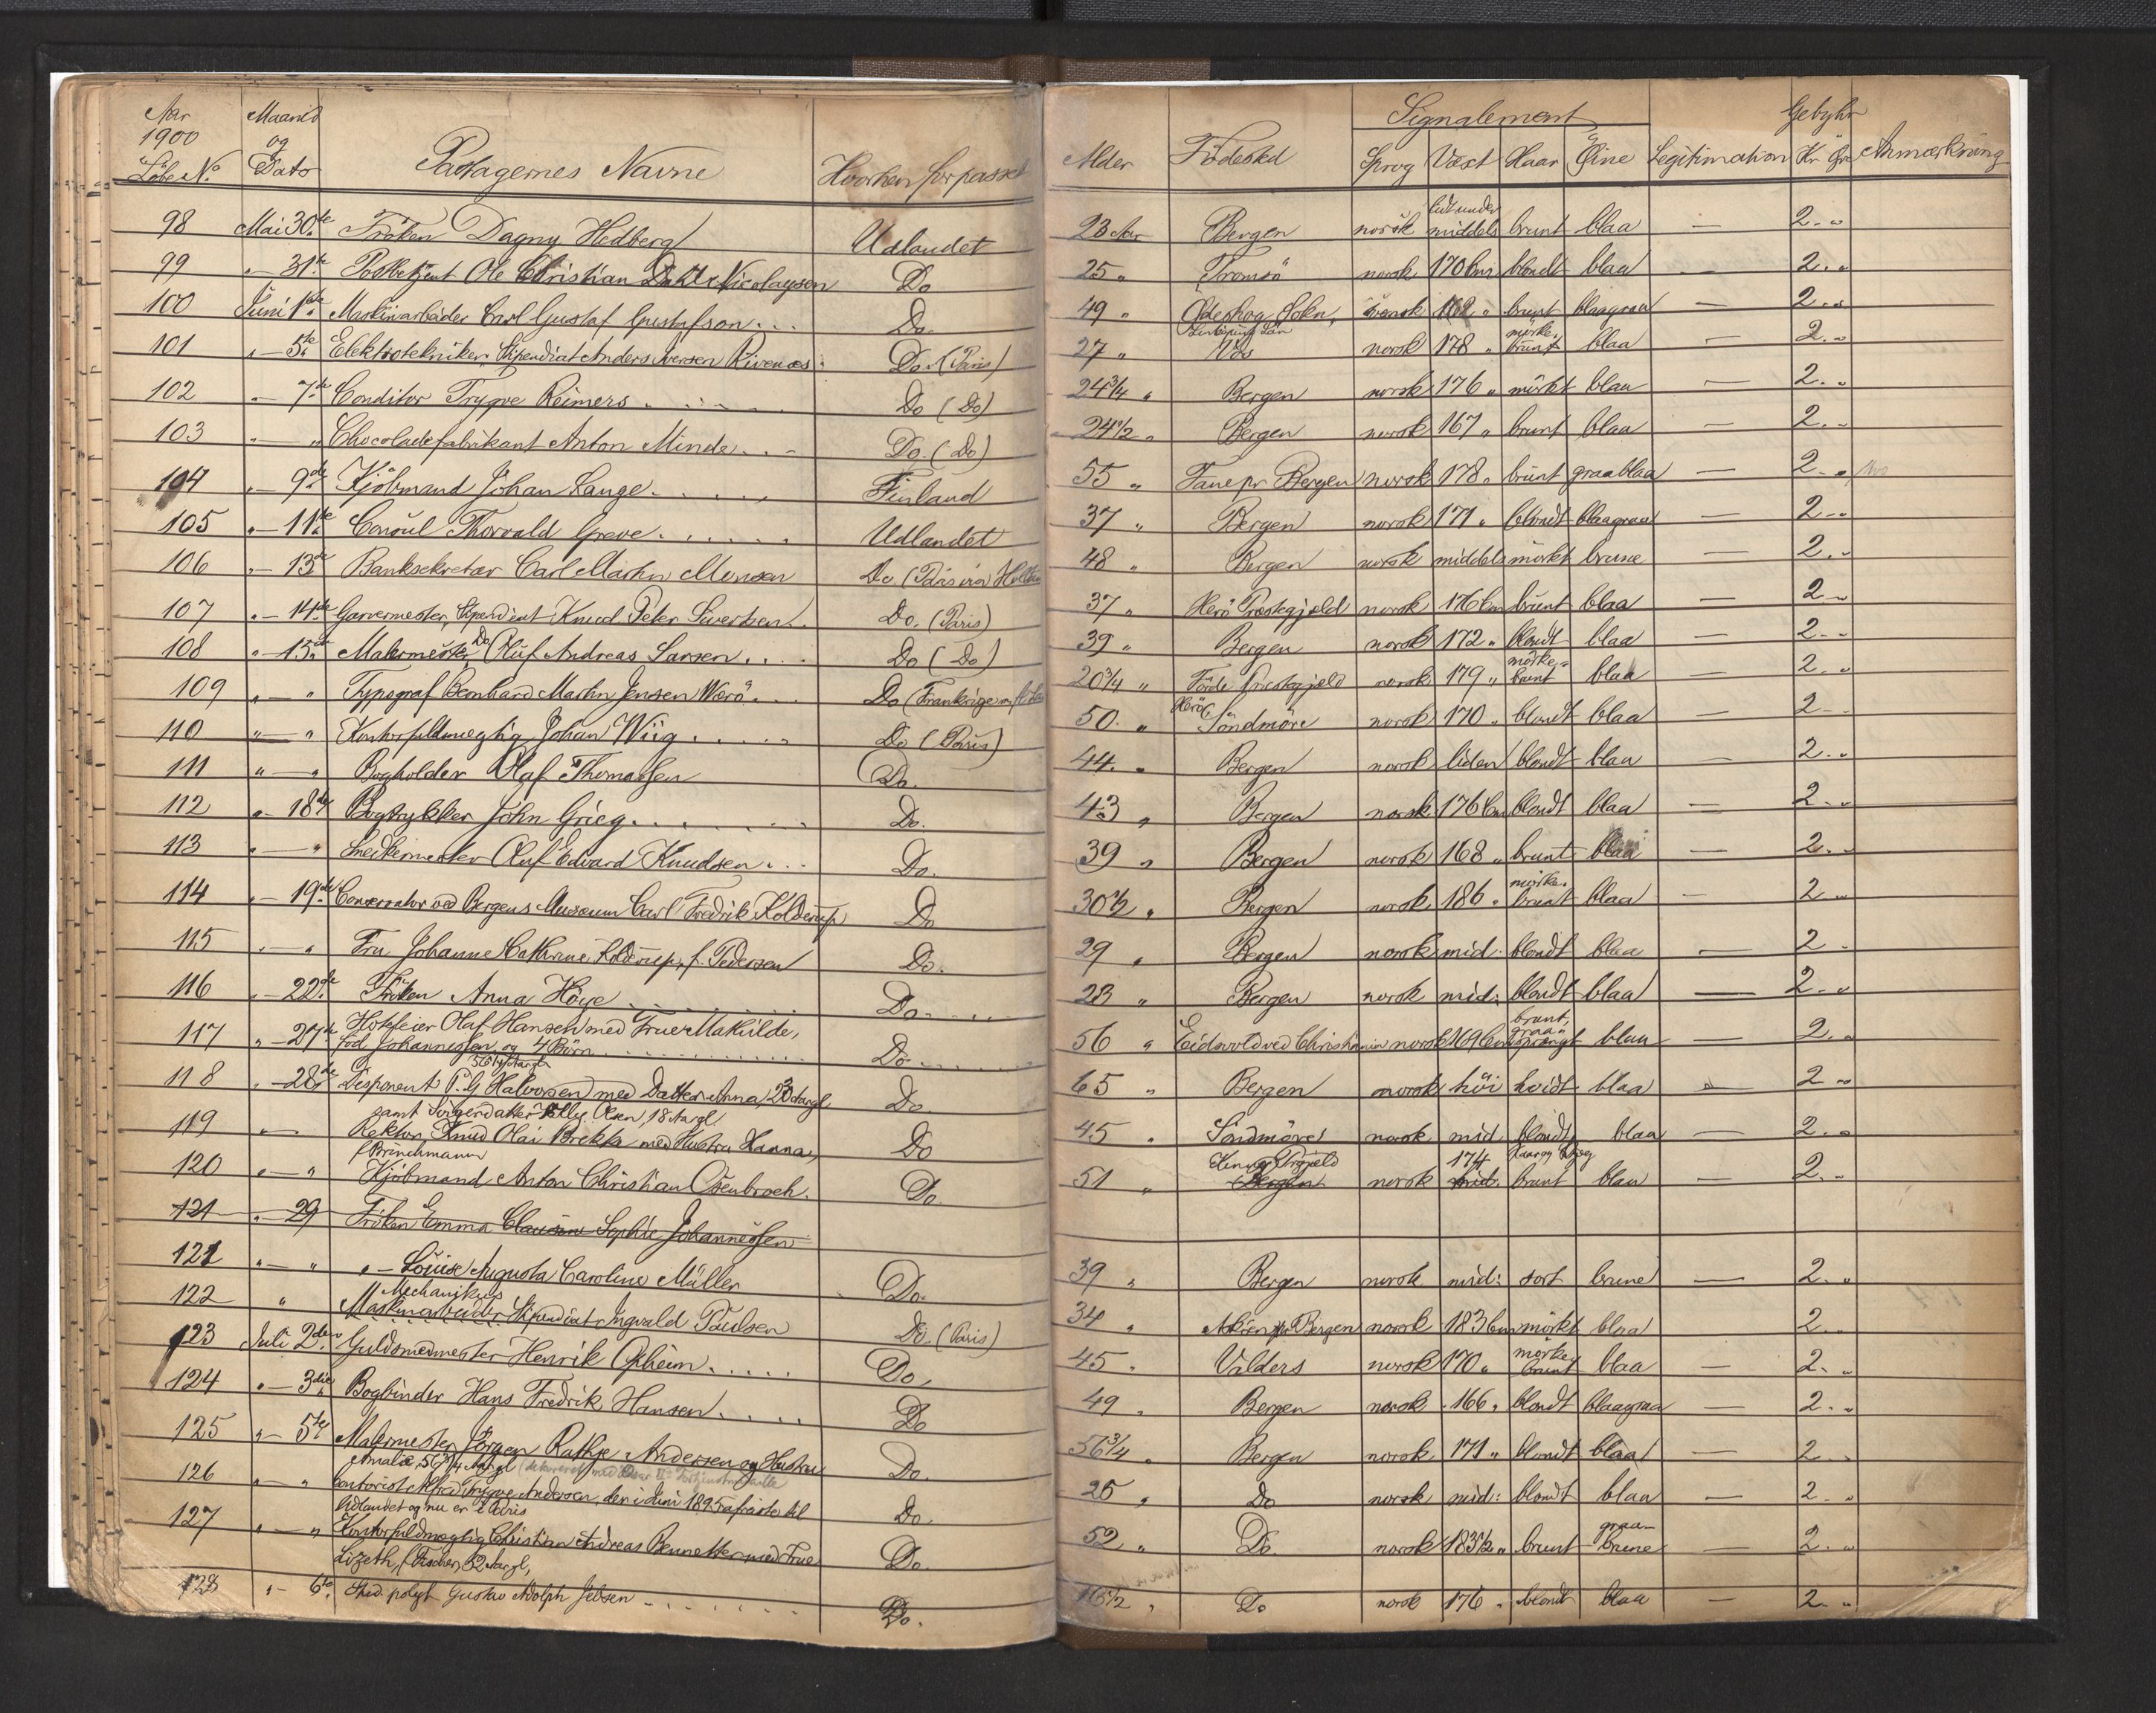 Aar 1900 Löbe No. | Maaned og Dato | Pastagernes Navne | Hvorhen forpasset | Alder | Födested | Signalement: Sprog | Væxt | Haar | Öine | Legitimation | Gebyhr Kr. Öre | Anmærkning
98 Mai 30te Fröken Dagny Hedberg Udlandet 23 Aar Bergen norsk lidt under middels brunt blaa — 2 - "
99 " — 31te Postbetjent Ole Christian Dahl Nicolaysen Do 25 " Tromsö norsk 170 Cm blondt blaa — 2 - "
100 Juni 1ste Maskinarbeider Carl Gustaf Gustafson Do. 49 " Ödeshog Sokn, Linköping Län svensk " brunt blaagraa — 2 - "
101 " — 5te Elektrotekniker, Stipendiat Anders Iversen Rivenæs Do. (Paris) 27 " Vos norsk 178 " mörke-brunt blaa — 2 - "
102 " — 7de Conditor Trygve Reimers Do (Do) 24 3/4 " Bergen norsk 176 " mörkt blaa — 2 - "
103 " — " Chocoladefabrikant Anton Minde Do. (Do) 24 1/2 " Bergen norsk 167 " brunt blaa — 2 - "
104 " — 9de Kjöbmand Johan Lange Finland 55 " Fane pr Bergen norsk 178 " brunt graablaa — 2 - "
105 " — 11te Consul Thorvald Greve Udlandet 37 " Bergen norsk 171 " blondt blaagraa — 2 - "
106 " — 13de Banksekretær Carl Martin Monsen Do. (Paris 48 " Bergen norsk middels mörkt brune — 2 - "
107 " — 14de Garvermester, Stipendiat Knud Peter Sivertsen Do. (Paris) 37 " Herö Præstegjeld norsk 176 Cm brunt blaa — 2 - "
108 " — 15de Malermester, Do Oluf Andreas Larsen Do (Do) 39 " Bergen norsk 172 " blondt blaa — 2 - "
109 " — " Typograf Bernhard Martin Jensen Værö Do (Frankrige 20 3/4 " Förde Præstegjeld norsk 179 " mörke-brunt blaa — 2 - "
110 " — " Kontorfuldmægtig Johan Wiig Do (Paris) 50 " Herö, Söndmöre norsk 170 " blondt blaa — 2 -
111 " — " Bogholder Olaf Thomassen Do. 44 " Bergen norsk liden blondt blaa — 2 - "
112 " — 18de Bogtrykker John Grieg Do. 43 " Bergen norsk 176 Cm blondt blaa — 2 - "
113 " — " Snedkermester Oluf Edvard Knudsen Do. 39 " Bergen norsk 168 " brunt blaa — 2 - "
114 " — 19de Conservator ved Bergens Museum Carl Fredrik Kolderup Do 30 1/2 " Bergen norsk 186 " mörke-brunt blaa — 2 - "
115 " — " Fru Johanne Cathrine Kolderup, f. Pedersen Do. 29 " Bergen norsk mid: blondt blaa — 2 -
116 " — 22de Fröken Anna Höye Do. 23 " Bergen norsk mid: blondt blaa — 2 - "
117 " — 27de Hoteleier Olaf Hansen med Frue Mathilde,
föd Johannessen og 4 Börn Do. 56 " Eidsvold ved Christiania norsk 169 Cm brunt, graa-sprængt blaa — 2 - "
118 " — 28de Disponent P. G Halvorsen med Datter Anna, 23 Aargl Do. 65 " Bergen norsk höi hvidt blaa — 2 - "
samt Svigerdatter Olsen, 18 Aargl
119 " — Rektor Knud Olai Brekke med Hustru Hanna,
f Brinchmann Do 45 " Söndmöre norsk mid. blondt, blaa — 2 - "
120 " — " Kjöbmand Anton Christian Osenbroch Do 51 " Kinn Prgjeld Bergen norsk 174 mid. brunt blaa — 2 - "
121 " — 29 Fröken Emma Clausine Sophie Johannessen
121 " — " " — Louise Augusta Caroline Müller Do. 39 " Bergen norsk mid: sort brune — 2 - "
122 " Mechanikus Maskinarbeider, Stipendiat Ingvald Paulsen Do. (Paris) 34 " Askøen pr Bergen norsk 183 Cm mörkt blaa 2 - "
123 Juli 2den Guldsmedmester Henrik Opheim Do. 45 " Valders norsk 170 " mörke-brunt blaa — 2 - "
124 " — 3die Bogbinder Hans Fredrik Hansen Do 49 " Bergen norsk 166 " blondt blaagraa — 2 - "
125 " — 5te Malermester Jörgen Rathje Andersen og Hustru
Amalie, 56 3/4 Aargl Do. 56 3/4 " Bergen norsk 171 " blondt blaa — 2 - "
126 " — " Contorist Alfred Trygve Andersen, der i Juni 1895 afreiste til
Udlandet og nu er i Paris Do. 25 " Do norsk mid: blondt blaa — 2 - "
127 " — " Kontorfuldmægtig Christian Andreas Bennetter med Frue
Lizeth, f. Fischer, 52 Aargl, Do. 52 " Do. norsk 183 1/2 " brunt graa-brune — 2 - "
128 " — 6te Stud. polyt Gustav Adolph Jebsen Do. " Do norsk 176 " blondt blaa — 2 - "